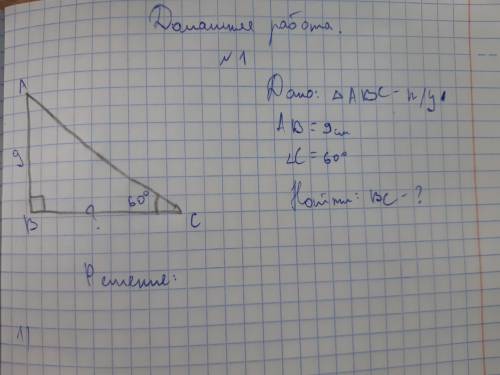 Домашняя работа.
№1
Дано: △ABC - п/уг
AB = 9см
∠C = 60°
Найти: BC - ?
A
9
B
?
60°
C
Решение:
1)